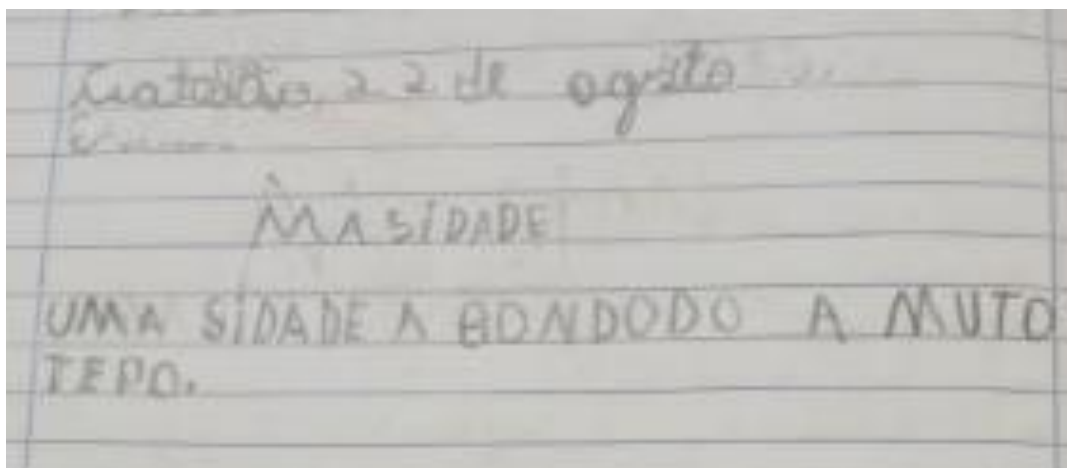 Catalão 22 de agosto
MA SIDADE
UMA SIDADE A BONDODO A MUTO
TEPO.